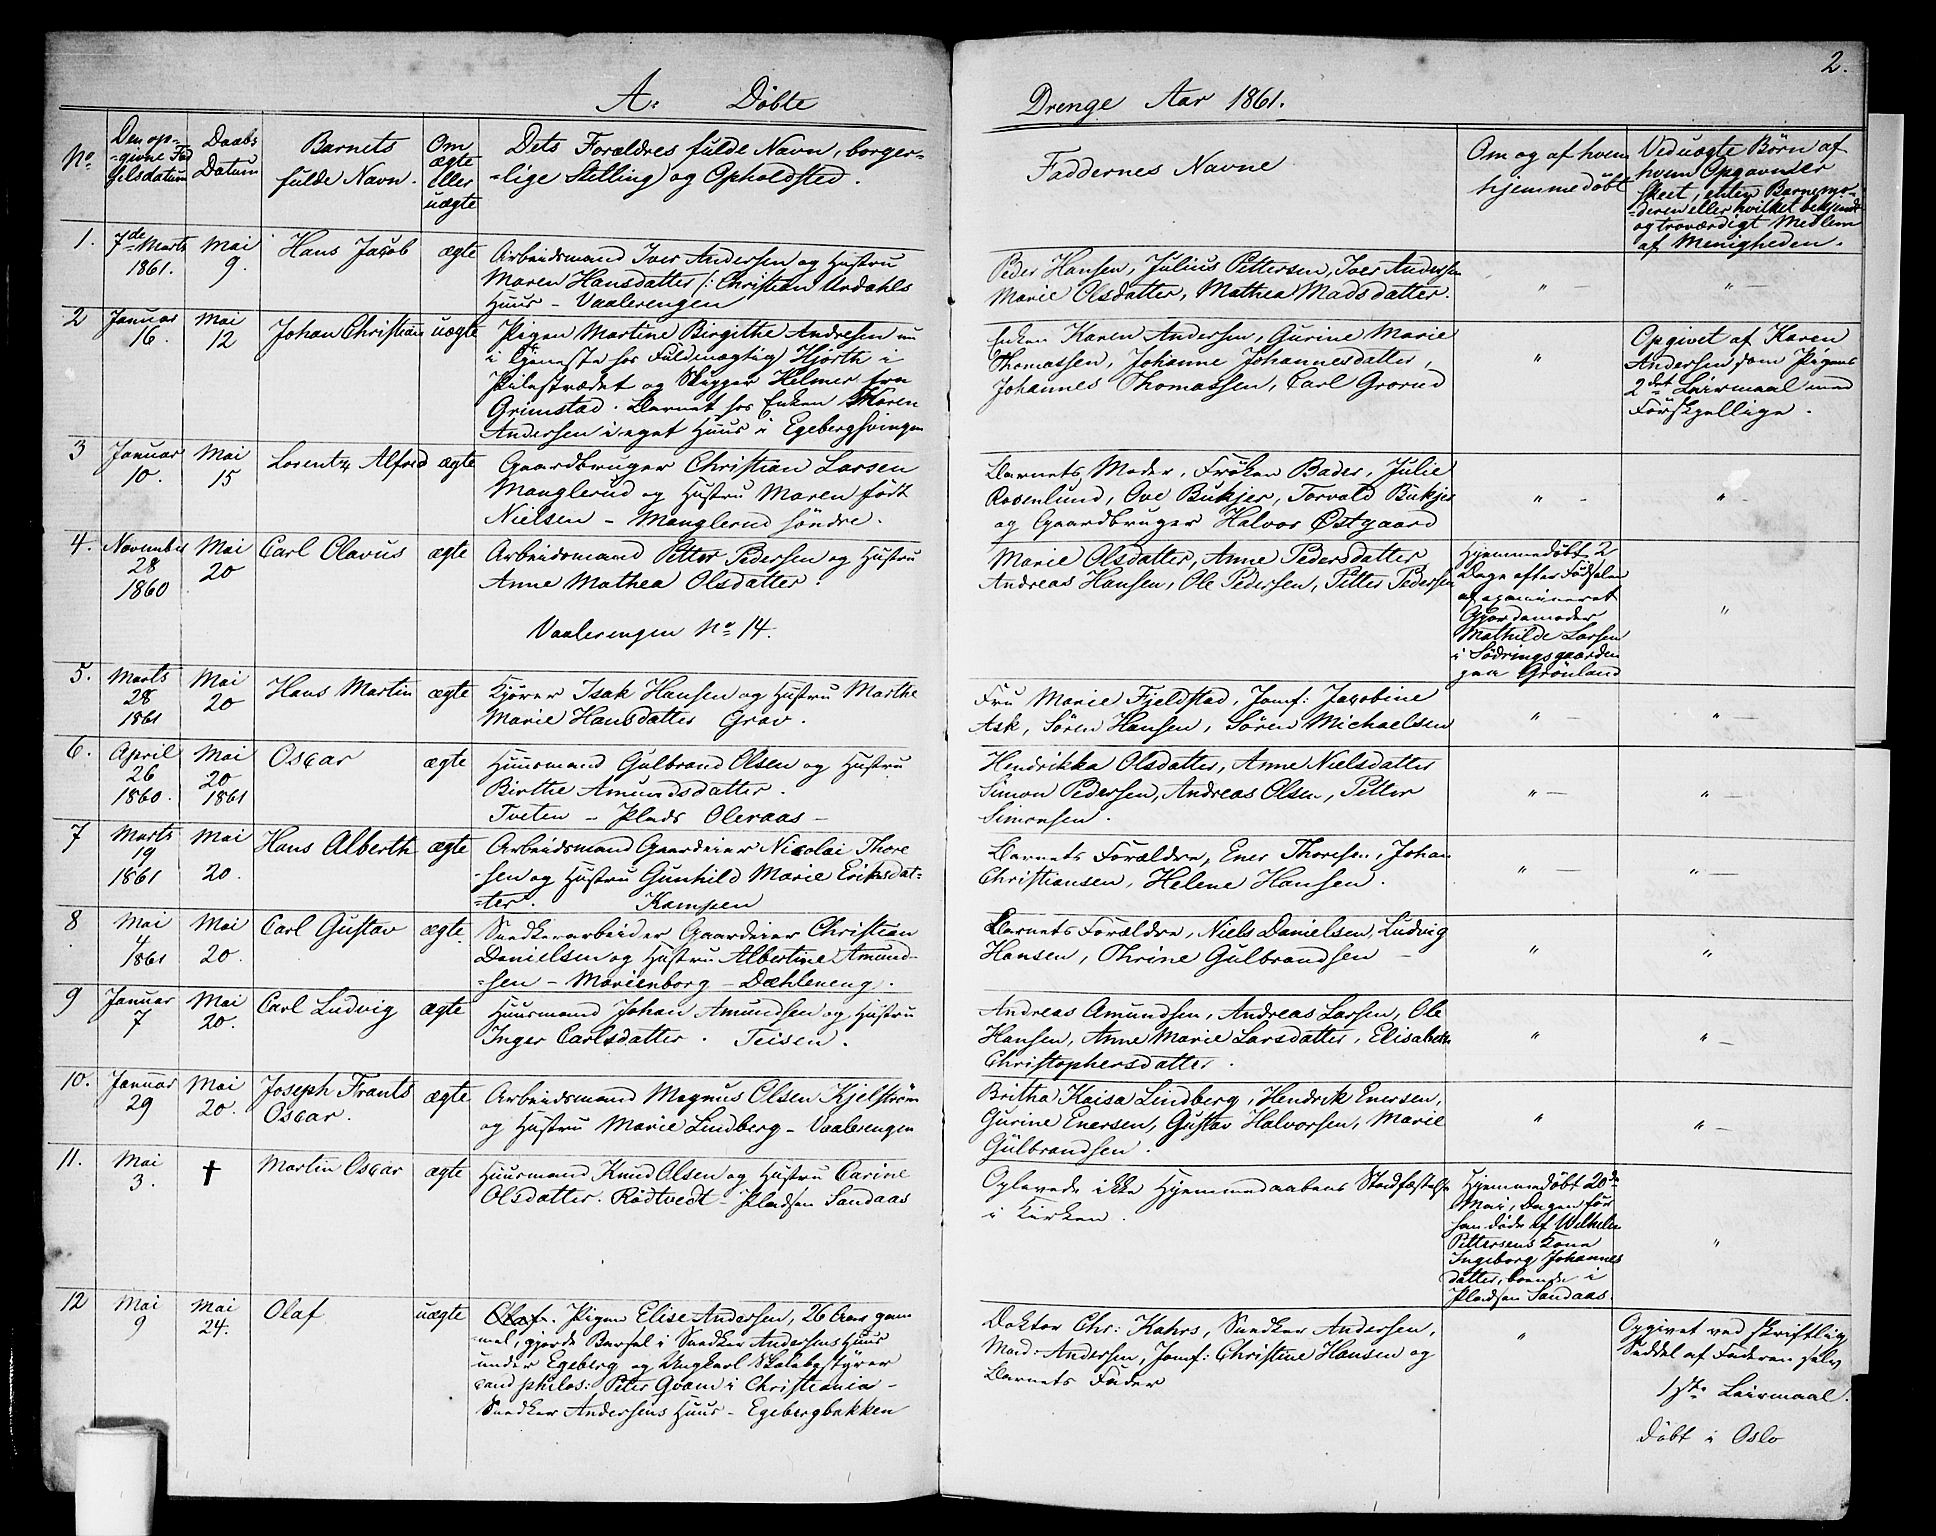 2.
A. Döbte
Drenge Aar 1861.
No.
Den op-
-givne Fød
selsdatum
Daabs
Datum
Barnets
fulde Navn.
Om
ægte
eller
uægte
Dets Forældres fulde Navn, borger-
-lige Stilling og Opholdsted.
Faddernes Navne
Om og af hvem
hjemmedöbt
Ved uægte Börn af
hvem Opgavnder
skeet, enten Barnemo-
-deren eller hvilket bekjendt
og troværdigt Medlem
af Menigheden.
1.
7de Marts
1861.
Mai
9.
Hans Jacob
ægte
Arbeidsmand Iver Andersen og Hustru
Maren Hansdatter /: Christian Ardahls
Huus - Vaalerengen
Peder Hansen, Julius Pettersen, Iver Andersen
Marie Olsdatter, Mathea Madsdatter.
" —
" —
2
Januar
16.
Mai
12
Johan Christian
uægte
Pigen Martine Birgithe Andresen nu
i Tjeneste hos Fuldmægtig Hjorth i
Pilestrædet og Skipper Helmer fra
Grimstad. Barnet hos Enken Karen
Andersen i eget Huus i Egebergsvingen
Enken Karen Andersen, Gurine Marie
Thomassen, Johanne Johannesdatter,
Johannes Thomassen, Carl Grorud
"
Opgivet af Karen
Andersen som Pigens
2det Leiermaal med
Forskjellige.
3
Januar
10.
Mai
15
Lorentz Alfred
ægte
Gaardbruger Christian Larsen
Manglerud og Hustru Maren født
Nielsen - Manglerud söndre.
Barnets Moder, Fröken Bader, Julie
Rosenlund, Ove Bukjer, Torvald Bukjer
og Gaardbruger Halvor Østgaard
" -
" -
4.
November
28
1860
Mai
20
Carl Olavus
ægte
Arbeidsmand Petter Pedersen og Hustru
Anne Mathea Olsdatter.
Vaalerengen No 14.
Marie Olsdatter, Anne Pedersdatter
Andreas Hansen, Ole Pedersen, Petter Pedersen
Hjemmedöbt 2
Dage efter Födselen
af examineret
Gjordemoder
Mathilde Larsen
i Södringsgaarden
paa Grönland
"
5.
Marts
28
1861
Mai
20
Hans Martin
ægte
Kjörer Isak Hansen og Hustru Marthe
Marie Hansdatter Grav.
Fru Marie Fjeldstad, Jomf: Jacobine
Ask, Sören Hansen, Sören Michaelsen
" —
" —
6.
April
26
1860.
Mai
20
1861
Oscar
ægte
Huusmand Gulbrand Olsen og Hustru
Birthe Amundsdatter.
Tveten - Plads Oleraas -
Hendrikka Olsdatter, Anne Nielsdatter
Simon Pedersen, Andreas Olsen, Petter
Simonsen.
" —
" —
7
Marts
19
1861
Mai
20.
Hans Alberth
ægte
Arbeidsmand Gaardeier Nicolai Thore
-sen og Hustru Gunhild Marie Eriksdat-
-ter. Kampen
Barnets Forældre, Ener Thoresen, Johan
Christiansen, Helene Hansen.
" —
" —
8
Mai
4
1861
Mai
20.
Carl Gustav
ægte.
Snedkerarbeider Gaardeier Christian
Danielsen og Hustru Albertine Amund-
-sen - Marienborg - Dæhleneng.
Barnets Forældre, Niels Danielsen, Ludvig
Hansen, Thrine Gulbrandsen —
"
"
9
Januar
7
Mai
20.
Carl Ludvig
ægte
Huusmand Johan Amundsen og Hustru
Inger Carlsdatter. Teisen.
Andreas Amundsen, Andreas Larsen, Ole
Hansen, Anne Marie Larsdatter, Elisabeth
Christophersdatter.
"
" —
10.
Januar
29
Mai
20.
Joseph Frants
Oscar.
ægte
Arbeidsmand Magnus Olsen Kjelström
og Hustru Marie Lindberg - Vaalerengen
Britha Kaisa Lindberg, Hendrik Enersen,
Gurine Enersen, Gustav Halvorsen, Marie
Gulbrandsen.
"
" —
11.
Mai
3.
†
Martin Oscar
ægte
Huusmand Knud Olsen og Hustru Carine
Olsdatter. Rødtvedt - Pladsen Sandaas
Oplevede ikke Hjemmedaabens Stadfæstelse
i Kirken.
Hjemmedöbt 20de
Mai, Dagen för
han döde af Wilhelm
Pettersens Kone
Ingeborg Johannes
datter, boende i
Pladsen Sandaas.
"
12
Mai
9
Mai
24.
Olaf
uægte
Olaf. Pigen Elise Andersen, 26 Aar gam
-mel, gjorde Barsel i Snedker Andersens Huus
under Egeberg og Ungkarl Skolebestyrer
cand philos: Peter Qvam i Christiania -
Snedker Andersens Huus - Egebergbakken
Doktor Chr: Kahrs, Snedker Andersen,
Mad: Andersen, Jomf: Christine Hansen og
Barnets Fader
"
Opgivet ved skriftlig
Seddel af Faderen selv
1ste Leiermaal.
Döbt i Oslo